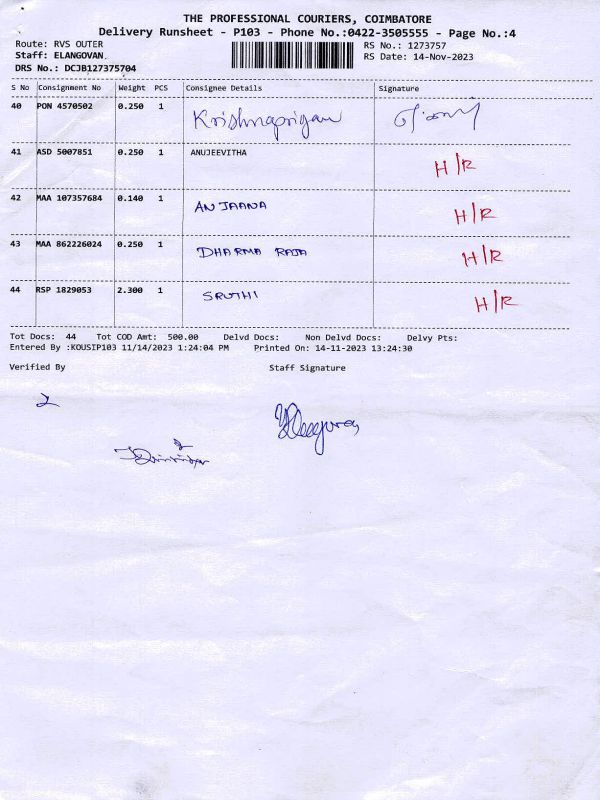 THE PROFESSIONAL COURIERS, COIMBATORE
Delivery Runsheet - P103 - Phone No.:0422-3505555 - Page No.:4
Route: RVS OUTER RS No.: 1273757
Staff: ELANGOVAN. RS Date: 14-Nov-2023
DRS No.: DCJB127375704
S No Consignment No Weight PCS Consignee Details Signature
40 PON 4570502 0.250 1 Krishnapriyan
41 ASD 5007851 0.250 1 ANUJEEVITHA H/R
42 MAA 107357684 0.140 1 ANJAANA H/R
43 MAA 862226024 0.250 1 DHARMA RAJA H/R
44 RSP 1829053 2.300 1 SRUTHI H/R
Tot Docs: 44 Tot COD Amt: 500.00 Delvd Docs: Non Delvd Docs: Delvy Pts:
Entered By :KOUSIP103 11/14/2023 1:24:04 PM Printed On: 14-11-2023 13:24:30
Verified By Staff Signature